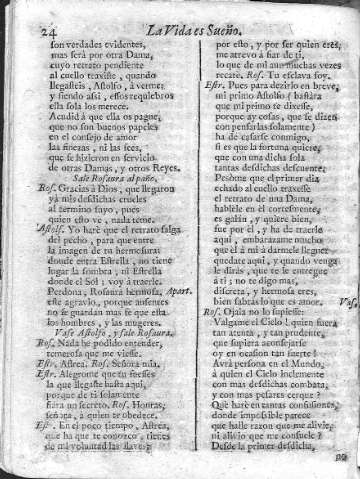 24
La Vida es Sueño.
son verdades evidentes,
mas será por otra Dama,
cuyo retrato pendiente
al cuello traxiste, quando
llegasteis, Astolfo, à vermes
y siendo assi, essos requiebros
ella sola los merece.
Acudid à que ella os pague,
que no son buenos papeles
en el consejo de amor
las finezas, ni las fees,
que se hizieron en servicio
de otras Damas, y otros Reyes.
Sale Rosaura al paño.
Ros. Gracias à Dios, que llegaron
yà mis desdichas crueles
al termino suyo, pues
quien esto ve, nada teme.
Astolf. Yo harè que el retrato salga
del pecho, para que entre
la imagen de tu hermosura:
donde entra Estrella, no tiene
lugar la sombra, ni Estrella
donde el Sol; voy à traerle.
Perdona, Rosaura hermosa, Apart.
este agravio, porque ausentes
no se guardan mas fe que esta
los hombres, y las mugeres.
Vase Astolfo, y sale Rosaura.
Ros. Nada he podido entender,
temerosa que me viesse.
Estr. Astrea. Ros. Señora mia.
Estr. Alegrome que tu fuesses
la que llegaste hasta aqui,
porque de ti solamente
fiara un secreto. Ros. Honras,
señora, à quien te obedece.
Estr. En el poco tiempo, Astrea,
que ha que te conozco, tienes
de mi voluntad las llaves;
por esto, y por ser quien eres,
me atrevo à fiar de ti,
lo que de mi aun muchas vezes
recatè. Ros. Tu esclava soy.
Estr. Pues para dezirlo en breve,
mi primo Astolfo (bastàra
que mi primo te dixesse,
porque ay cosas, que se dizen
con pensarlas solamente)
ha de casarse conmigo,
si es que la fortuna quiere,
que con una dicha sola
tantas desdichas descuente.
Pesòme que el primer dia
echado al cuello traxesse
el retrato de una Dama,
hablèle en èl cortesmente,
es galàn, y quiere bien,
fue por èl, y ha de traerle
aqui, embarazame mucho
que èl à mi à darmele llegue:
quedate aqui, y quando venga
le diràs, que te le entregue
à ti; no te digo mas,
discreta, y hermosa eres,
bien sabràs lo que es amor. Vase.
Ros. Ojala no lo supiesse:
Valgame el Cielo! quien fuera
tan atenta, y tan prudente,
que supiera aconsejarse
oy en ocasion tan fuerte!
Avrà persona en el Mundo,
à quien el Cielo inclemente
con mas desdichas combata,
y con mas pesares cerque?
Què harè en tantas confusiones,
donde impossible parece
que halle razon que me alivie,
ni alivio que me consuele?
Desde la primer desdicha,
no